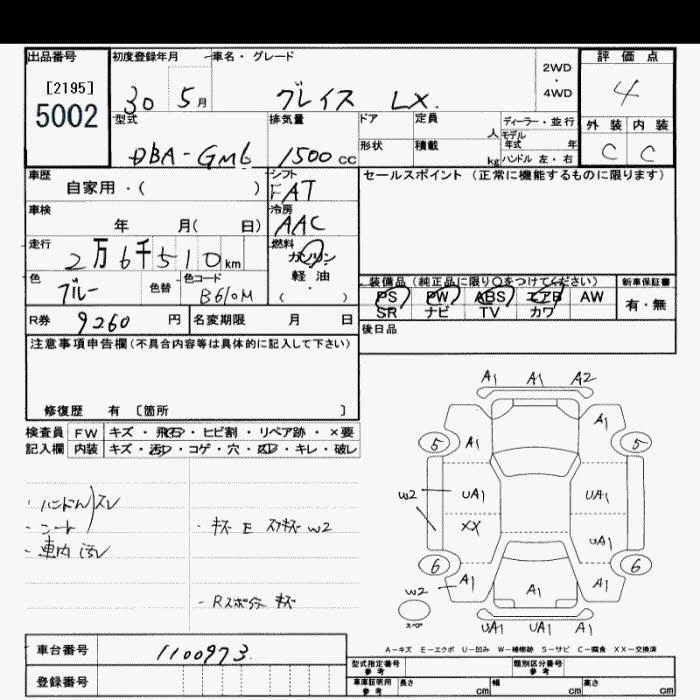 出品番号
[2195]
5002
初度登録年月
30 5月
車名・グレード
グレイス LX.
2WD
・
4WD
評価点
4
外装 内装
C C
型式
DBA-GM6
排気量
1500cc
ドア 定員
人
形状 積載
kg
ディーラー・並行
モデル
年式 年
ハンドル 左・右
車歴
自家用・( )
シフト
FAT
セールスポイント(正常に機能するものに限ります)
車検
年 月( 日)
冷房
AAC
走行
2万6千510km
燃料
ガソリン
軽油
( )
色
ブルー
色替
色コード
B610M
装備品(純正品に限り○をつけてください)
PS PW ABS エアB AW
SR ナビ TV カワ
新車保証書
有・無
R券
9260円
名変期限 月 日
後日品
注意事項申告欄(不具合内容等は具体的に記入して下さい)
修復歴 有 〔箇所 〕
検査員 FW キズ・飛石・ヒビ割・リペア跡・×要
記入欄 内装 キズ・汚れ・コゲ・穴・凹み・キレ・破レ
・ハンドル スレ
・シート
・車内 汚レ
・キズ E スリキズ W2
・Rスポイラー キズ
A1 A1 A2
A1 A1
5 5
W2 UA1 UA1
XX UA1
6 6
W2 A1 A1 A1
スペア
UA1 UA1 A1
A-キズ E-エクボ U-凹み W-補修跡 S-サビ C-腐食 XX-交換済
車台番号
1100973
登録番号
型式指定番号
参考
類別区分番号
参考
車庫証明用
参考
長さ cm
幅 cm
高さ cm